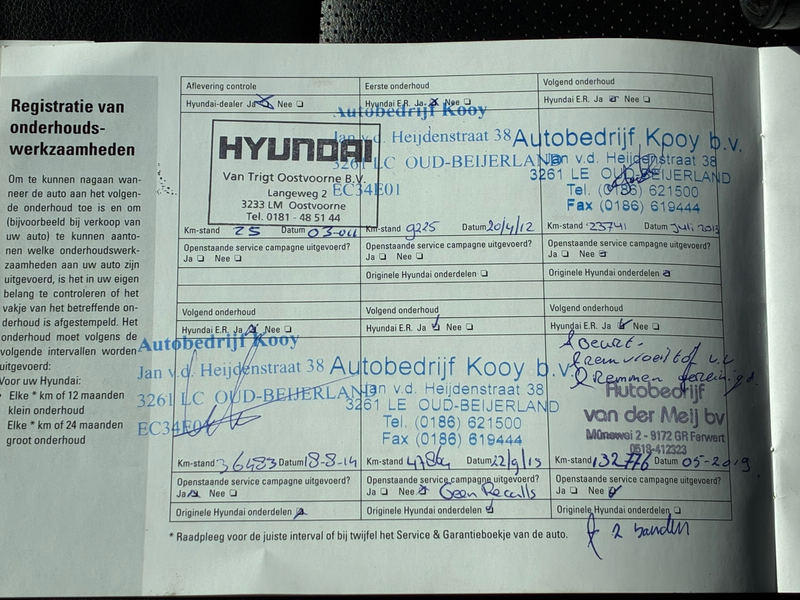 Registratie van
onderhouds-
werkzaamheden
Om te kunnen nagaan wan-
neer de auto aan het volgen-
de onderhoud toe is en om
(bijvoorbeeld bij verkoop van
uw auto) te kunnen aanto-
nen welke onderhoudswerk-
zaamheden aan uw auto zijn
uitgevoerd, is het in uw eigen
belang te controleren of het
vakje van het betreffende on-
derhoud is afgestempeld. Het
onderhoud moet volgens de
volgende intervallen worden
uitgevoerd:
Voor uw Hyundai:
Elke * km of 12 maanden
klein onderhoud
Elke * km of 24 maanden
groot onderhoud
Aflevering controle
Hyundai-dealer Ja Nee
HYUNDAI
Van Trigt Oostvoorne B.V.
Langeweg 2
3233 LM Oostvoorne
Tel. 0181 - 48 51 44
Km-stand 25 Datum
Openstaande service campagne uitgevoerd?
Ja Nee
Eerste onderhoud
Hyundai E.R. Ja Nee
Autobedrijf Kooy
Jan v.d. Heijdenstraat 38
3261 LC OUD-BEIJERLAND
EC34E01
Km-stand 9225 Datum 20/4/12
Openstaande service campagne uitgevoerd?
Ja Nee
Originele Hyundai onderdelen
Volgend onderhoud
Hyundai E.R. Ja Nee
Autobedrijf Kooy b.v.
Jan v.d. Heijdenstraat 38
3261 LE OUD-BEIJERLAND
Tel. (0186) 621500
Fax (0186) 619444
Km-stand 23741 Datum Juli 2013
Openstaande service campagne uitgevoerd?
Ja Nee
Originele Hyundai onderdelen
Volgend onderhoud
Hyundai E.R. Ja Nee
Autobedrijf Kooy
Jan v.d. Heijdenstraat 38
3261 LC OUD-BEIJERLAND
EC34E01
Km-stand 36483 Datum 18-8-14
Openstaande service campagne uitgevoerd?
Ja Nee
Originele Hyundai onderdelen
Volgend onderhoud
Hyundai E.R. Ja Nee
Autobedrijf Kooy b.v.
Jan v.d. Heijdenstraat 38
3261 LE OUD-BEIJERLAND
Tel. (0186) 621500
Fax (0186) 619444
Km-stand 47864 Datum 22/9/15
Openstaande service campagne uitgevoerd?
Ja Nee Geen Recalls
Originele Hyundai onderdelen
Volgend onderhoud
Hyundai E.R. Ja Nee
& Beurt.
& Remvloeistof v.v
& Remmen gereinigd.
Autobedrijf
van der Meij bv
Mûnewei 2 - 9172 GR Ferwert
0518-412323
Km-stand 132776 Datum 05-2019
Openstaande service campagne uitgevoerd?
Ja Nee
Originele Hyundai onderdelen
& 2 banden
* Raadpleeg voor de juiste interval of bij twijfel het Service & Garantieboekje van de auto.